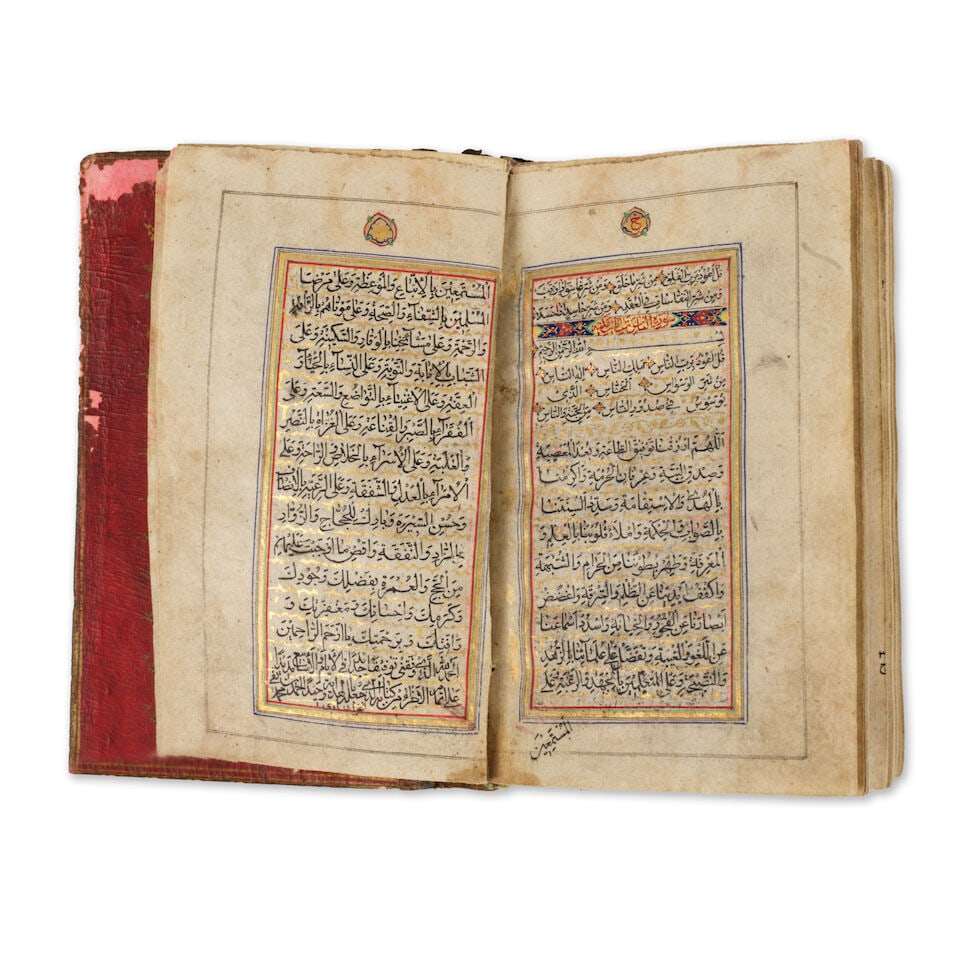 قل اعوذ برب الفلق من شر ما خلق ومن شر غاسق اذا وقب
ومن شر النفاثات في العقد ومن شر حاسد اذا حسد
سورة
بسم الله الرحمن الرحيم
قل اعوذ برب الناس ملك الناس اله الناس
من شر الوسواس الخناس الذي
يوسوس في صدور الناس من الجنة والناس
اللهم ارزقنا توفيق الطاعة وبعد المعصية
وصدق النية وعرفان الحرمة واكرمنا
بالهدى والاستقامة وسدد السنتنا
بالصواب والحكمة واملاء قلوبنا بالعلم و
المعرفة وطهر بطوننا من الحرام والشبهة
واكفف ايدينا عن الظلم والسرقة واغضض
ابصارنا عن الفجور والخيانة واسدد اسماعنا
عن اللغو والغيبة وتفضل على علمائنا بالزهد
والنصيحة وعلى المتعلمين بالجهد والرغبة وعلى
المستمعين
المستمعين بالاتباع والموعظة وعلى مرضى
المسلمين بالشفاء والصحة وعلى موتاهم بالرافة
والرحمة وعلى مشايخنا بالوقار والسكينة وعلى
الشباب بالانابة والتوبة وعلى النساء بالحياء و
العفة وعلى الاغنياء بالتواضع والسعة وعلى
الفقراء بالصبر والقناعة وعلى الغزاة بالنصر
والغلبة وعلى الاسراء بالخلاص والراحة وعلى
الامراء بالعدل والشفقة وعلى الرعية بالانصاف
وحسن السيرة وبارك للحجاج والزوار
في الزاد والنفقة واقض ما اوجبت عليهم
من الحج والعمرة بفضلك وجودك
وكرمك واحسانك ومغفرتك و
رافتك وبرحمتك يا ارحم الراحمين